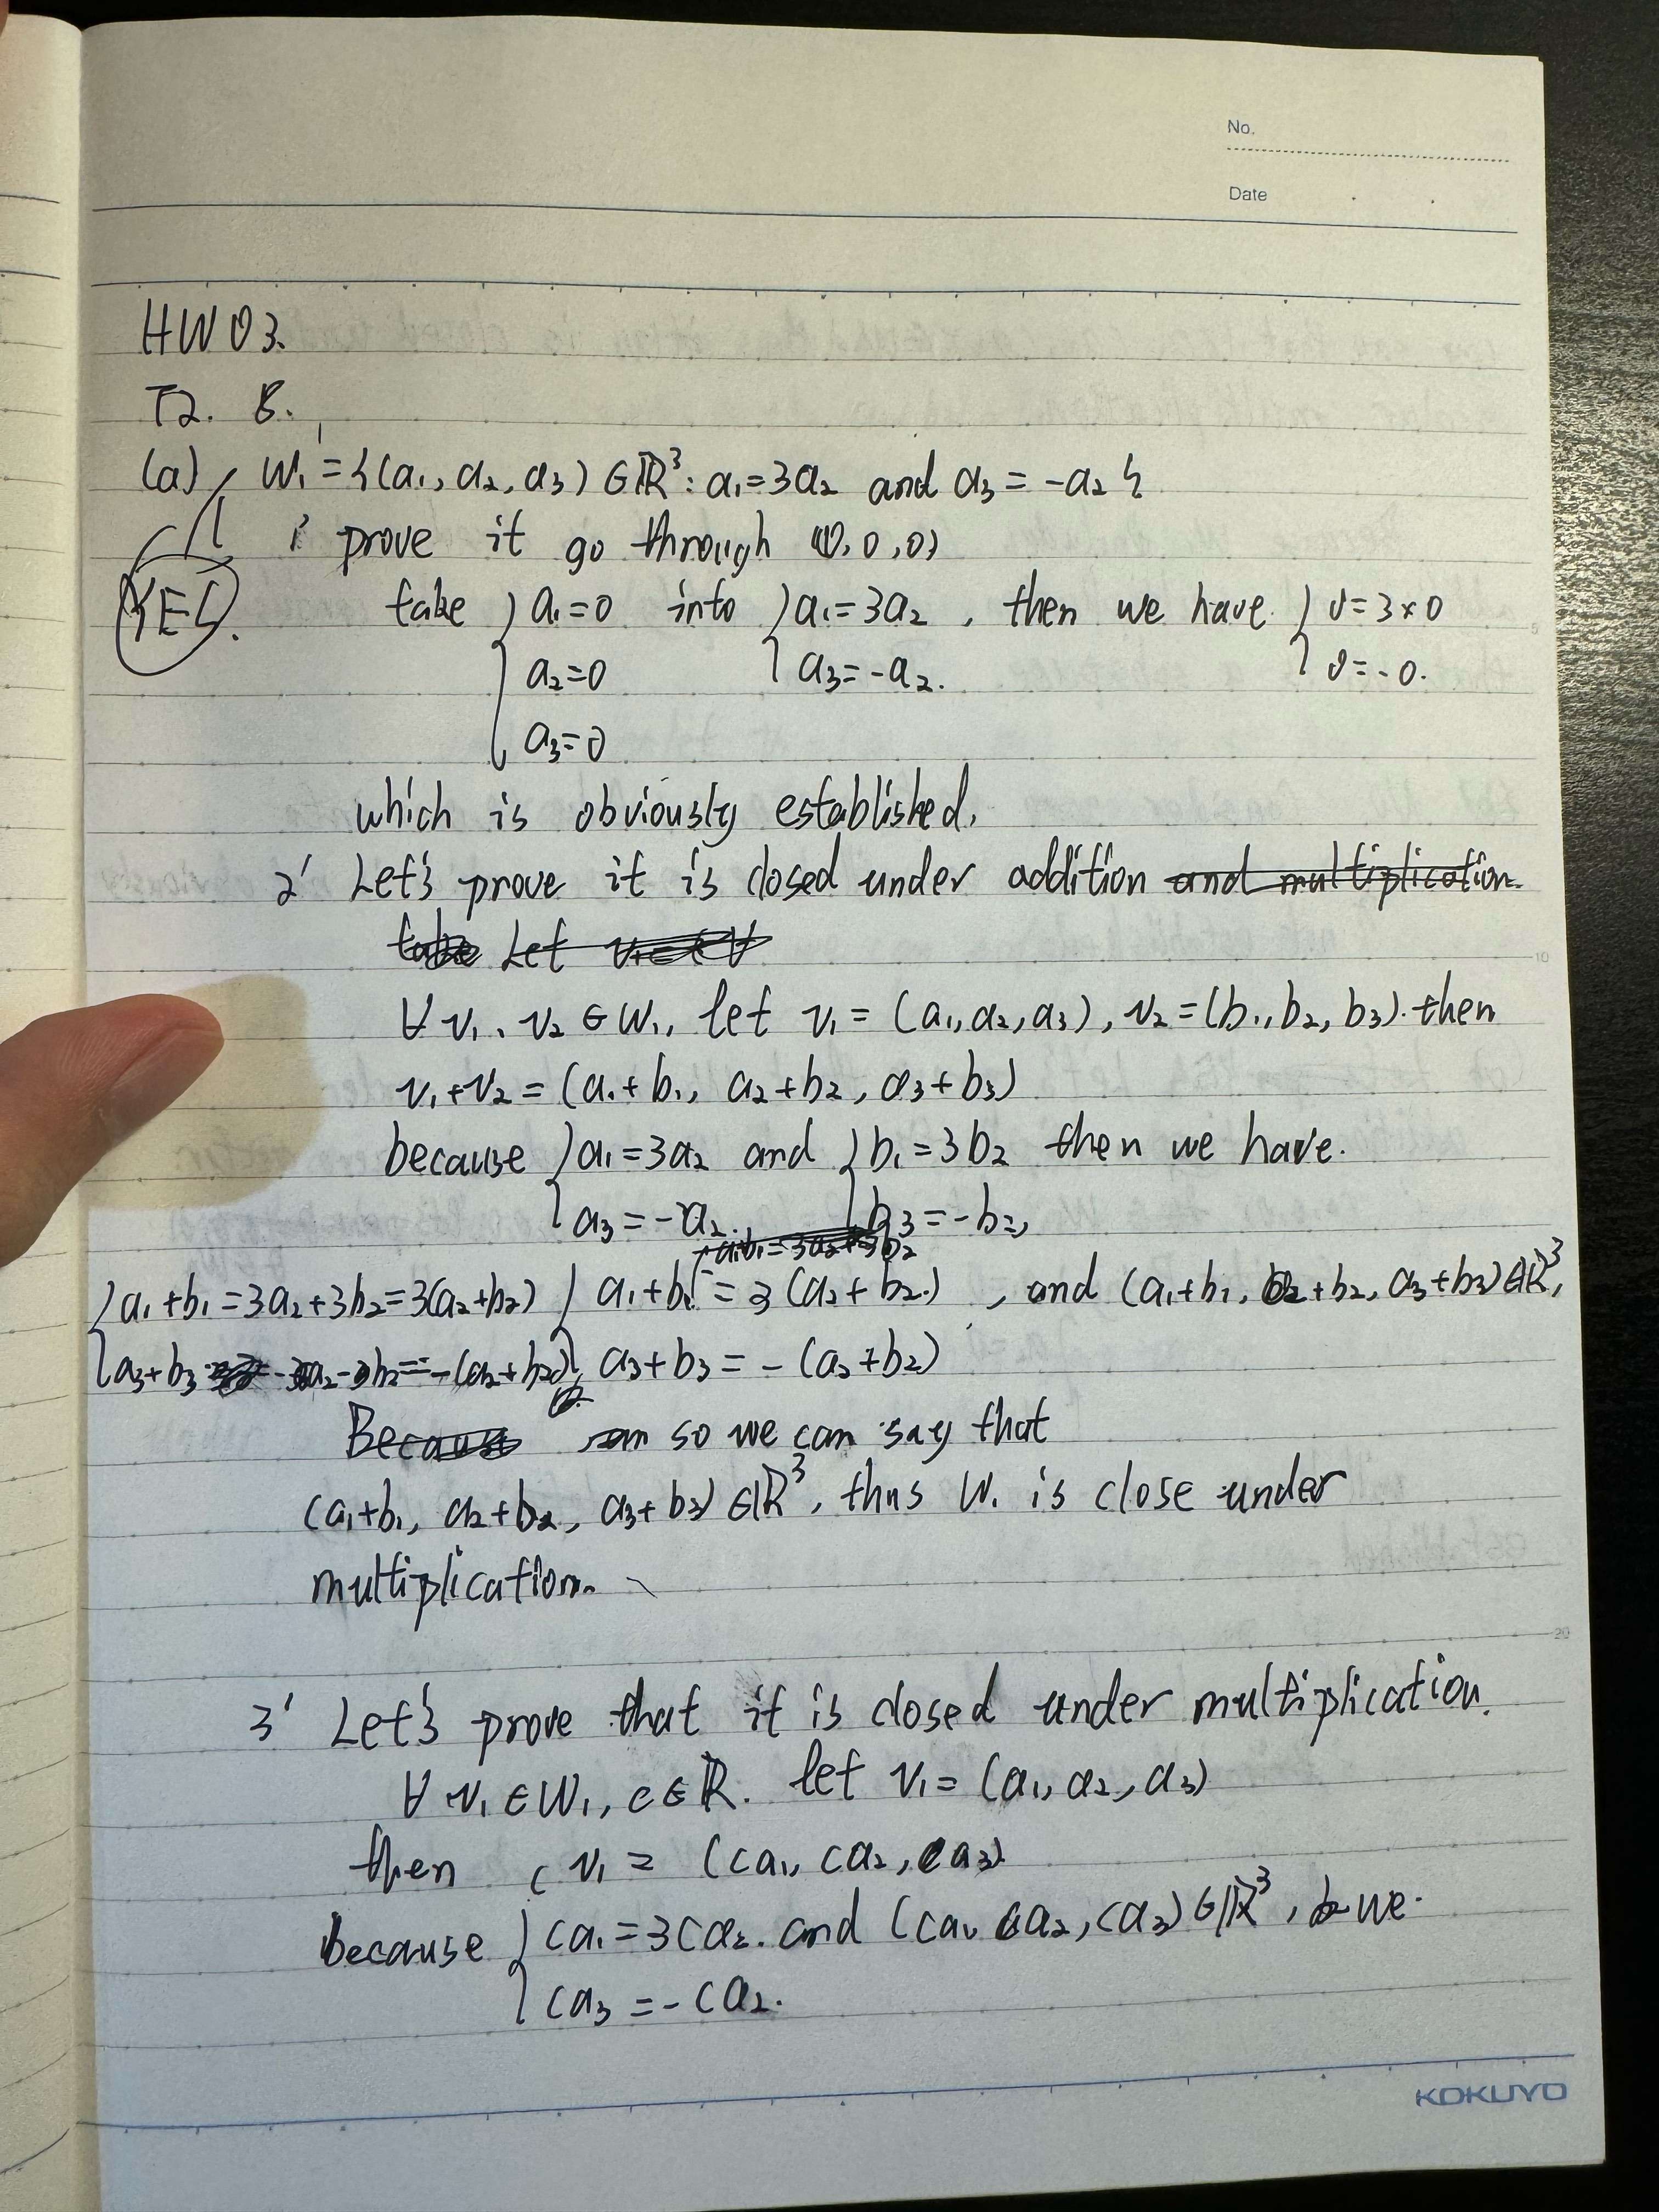 No.
Date
HW03.
T2. 8.
(a) W₁ = {(a₁, a₂, a₃) ∈ ℝ³: a₁ = 3a₂ and a₃ = -a₂}
YES.
1' prove it go through (0, 0, 0)
take { a₁=0 into { a₁=3a₂ , then we have { 0=3×0
a₂=0 a₃=-a₂. 0=-0.
a₃=0
which is obviously established.
2' Let's prove it is closed under addition and multiplication.
take Let
∀ v₁, v₂ ∈ W₁, let v₁ = (a₁, a₂, a₃), v₂ = (b₁, b₂, b₃). then
v₁+v₂ = (a₁+b₁, a₂+b₂, a₃+b₃)
because { a₁=3a₂ and { b₁=3b₂ then we have.
a₃=-a₂. b₃=-b₂,
{ a₁+b₁=3a₂+3b₂=3(a₂+b₂) { a₁+b₁ = 3(a₂+b₂) , and (a₁+b₁, a₂+b₂, a₃+b₃) ∈ ℝ³,
a₃+b₃ = -a₂-b₂ = -(a₂+b₂) a₃+b₃ = -(a₂+b₂)
Because so we can say that
(a₁+b₁, a₂+b₂, a₃+b₃) ∈ ℝ³, thus W₁ is close under
multiplication.
20
3' Let's prove that it is closed under multiplication.
∀ v₁ ∈ W₁, c ∈ ℝ. let v₁ = (a₁, a₂, a₃)
then cv₁ = (ca₁, ca₂, ca₃)
because { ca₁=3ca₂. and (ca₁, ca₂, ca₃) ∈ ℝ³, we
ca₃ = -ca₂.
KOKUYO